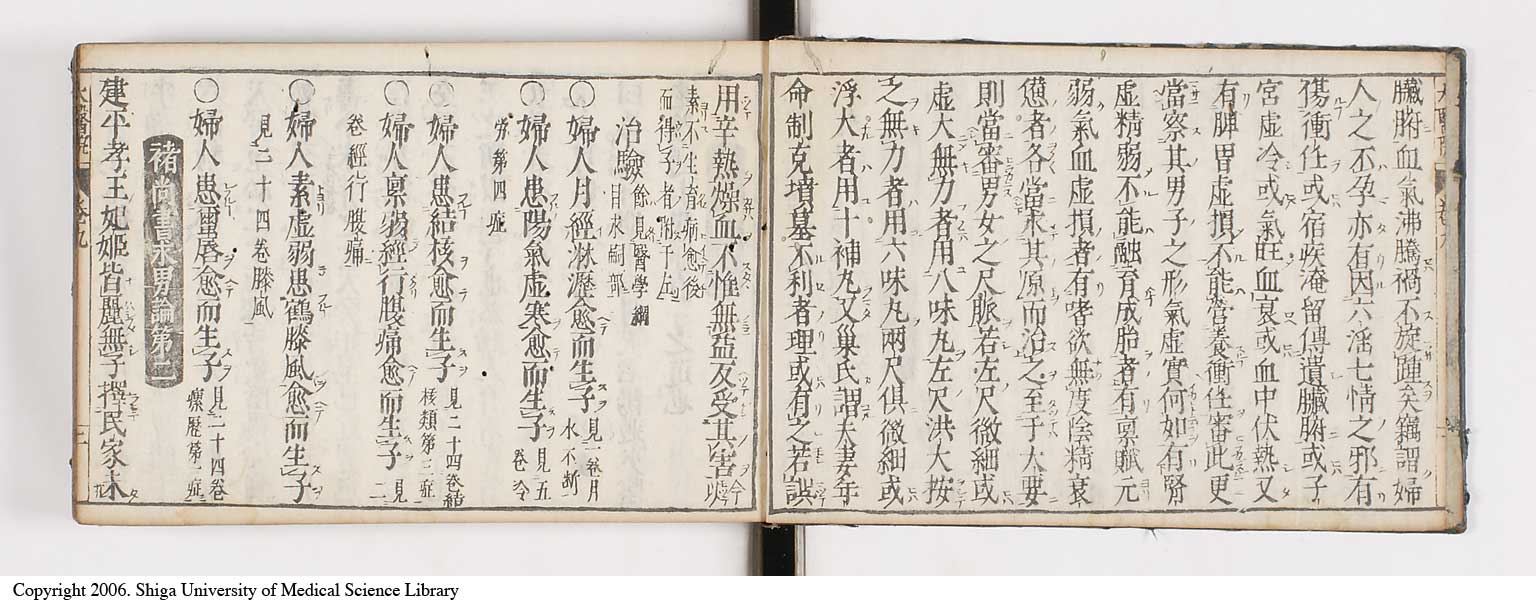 臟腑血氣沸騰禍不旋踵矣竊謂婦
人之不孕亦有因六淫七情之邪有
傷衝任或宿疾淹留傳遺臟腑或子
宮虛冷或氣旺血衰或血中伏熱又
有脾胃虛損不能營養衝任審此更
當察其男子之形氣虛實何如有腎
虛精弱不能融育成胎者有禀賦元
弱氣血虛損者有嗜欲無度陰精衰
憊者各當求其原而治之至于大要
則當審男女之尺脈若左尺微細或
虛大無力者用八味丸左尺洪大按
之無力者用六味丸兩尺俱微細或
浮大者用十補丸又巢氏謂夫妻年
命制克墳墓不利者理或有之若誤
用辛熱燥血不惟無益反受其害
素不生育病愈後
而得子者附于左
治驗 餘見醫學綱
目求嗣部
〇婦人月經淋瀝愈而生子 見一卷月
水不斷
〇婦人患陽氣虛寒愈而生子 見五
卷冷
勞第四症
〇婦人患結核愈而生子 見二十四卷結
核類第三症
〇婦人禀弱經行腹痛愈而生子 見二
卷經行腹痛
〇婦人素虛弱患鶴膝風愈而生子
見二十四卷膝風
〇婦人患繭唇愈而生子 見二十四卷
瘰癧第二症
褚尚書求男論第二
建平孝王妃姬皆麗無子擇民家未
Copyright 2006. Shiga University of Medical Science Library